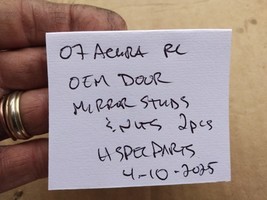 07 ACURA RL
OEM DOOR
MIRROR STUDS
& NUTS 2pcs
HSPECPARTS
4-10-2025